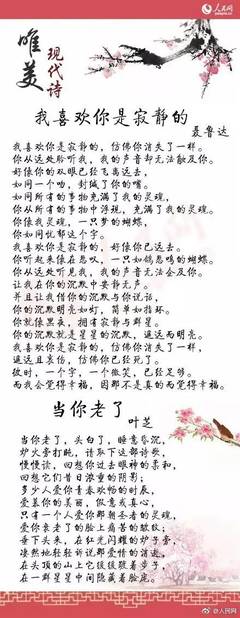 人民网
唯美
现代诗
我喜欢你是寂静的
聂鲁达
我喜欢你是寂静的，仿佛你消失了一样。
你从远处聆听我，我的声音却无法触及你。
好像你的双眼已经飞离远去，
如同一个吻，封缄了你的嘴。
如同所有的事物充满了我的灵魂，
你从所有的事物中浮现，充满了我的灵魂。
你像我灵魂，一只梦的蝴蝶，
你如同忧郁这个字。
我喜欢你是寂静的，好像你已远去。
你听起来像在悲叹，一只如鸽悲鸣的蝴蝶。
你从远处听见我，我的声音无法企及你。
让我在你的沉默中安静无声。
并且让我借你的沉默与你说话，
你的沉默明亮如灯，简单如指环。
你就像黑夜，拥有寂静与群星。
你的沉默就是星星的沉默，遥远而明亮。
我喜欢你是寂静的，仿佛你消失了一样，
遥远且哀伤，仿佛你已经死了。
彼时，一个字，一个微笑，已经足够。
而我会觉得幸福，因那不是真的而觉得幸福。
当你老了
叶芝
当你老了，头白了，睡意昏沉，
炉火旁打盹，请取下这部诗歌，
慢慢读，回想你过去眼神的柔和，
回想它们昔日浓重的阴影；
多少人爱你青春欢畅的时辰，
爱慕你的美丽，假意或真心，
只有一个人爱你那朝圣者的灵魂，
爱你衰老了的脸上痛苦的皱纹；
垂下头来，在红光闪耀的炉子旁，
凄然地轻轻诉说那爱情的消逝，
在头顶的山上它缓缓踱着步子，
在一群星星中间隐藏着脸庞。
@人民网